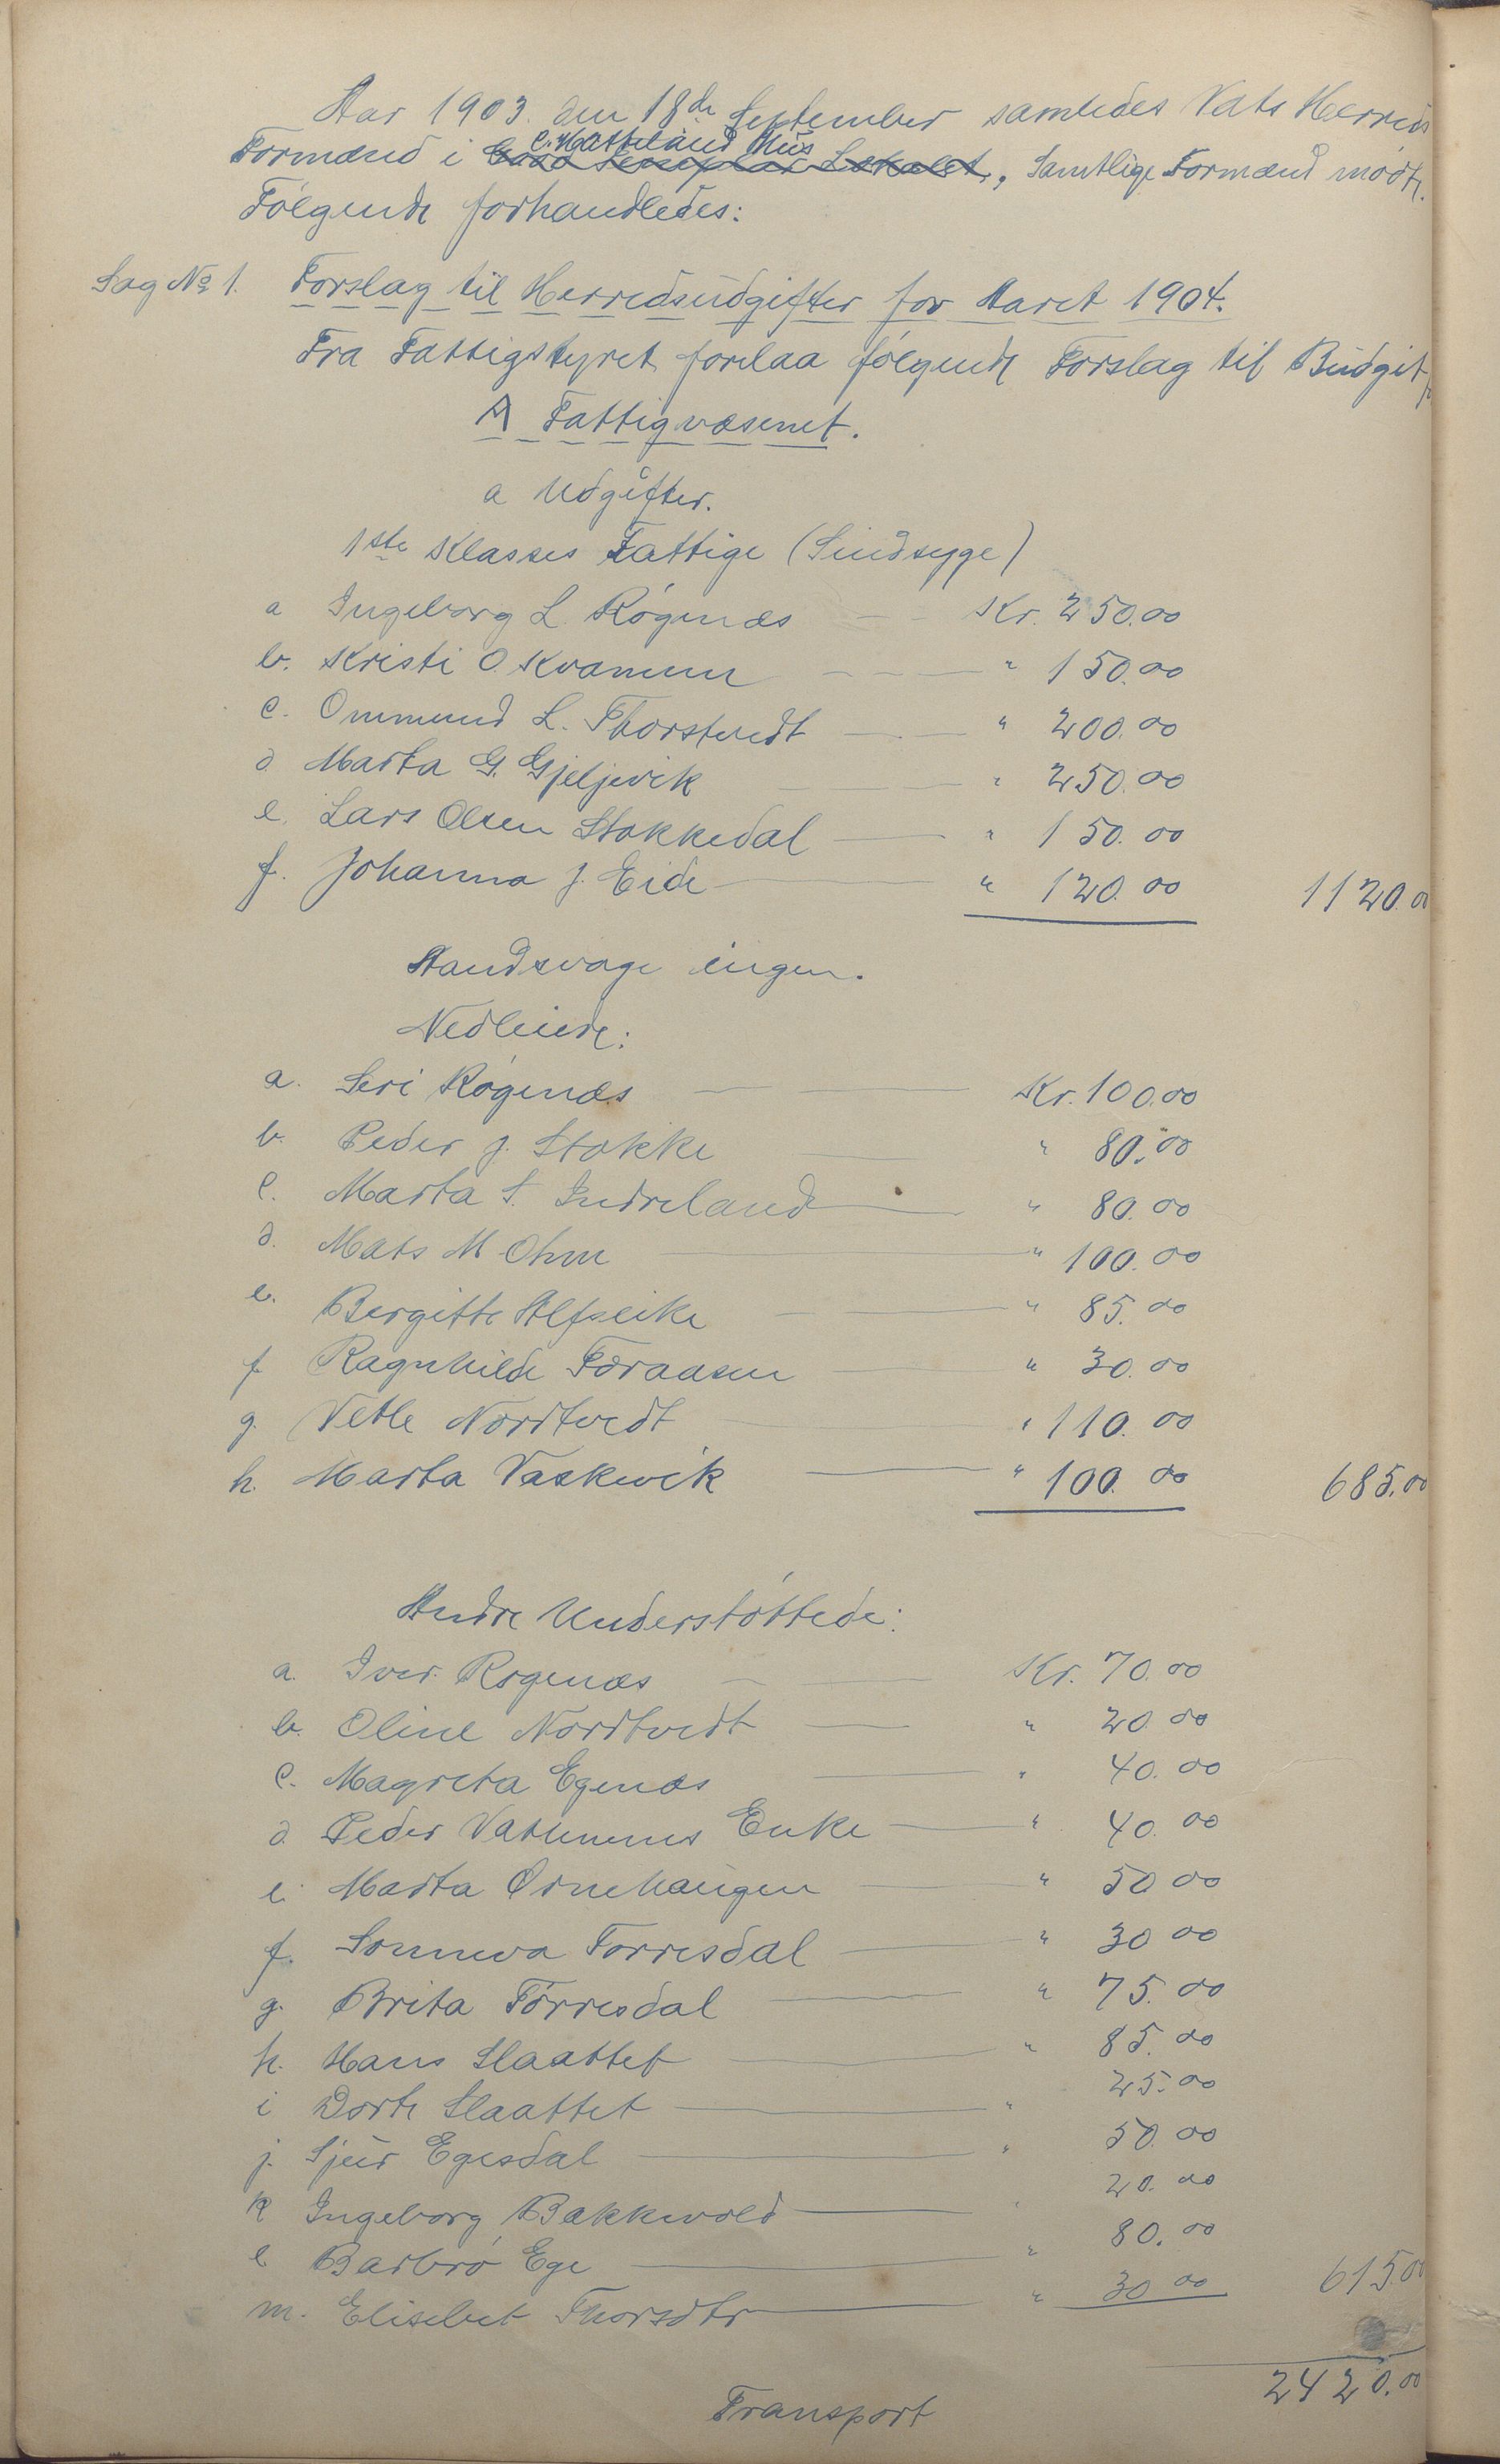 Aar 1903. den 18de September samledes Vats Herreds
C. Hatteland Hus
Formænd i Lokalet, Samtlige Formænd mødte.
Følgende forhandledes:
Sag No 1. Forslag til Herredsudgifter for Aaret 1904.
Fra Fattigstyret forelaa følgende Forslag til Budget
A Fattigvæsenet.
a Udgifter.
1ste Klasses Fattige (Sindsyge)
a Ingeborg L. Røgenæs Kr. 250.00
b. Kristi O. Kvammen " 150.00
c. Ommund L. Thorstvedt " 200.00
d. Marta G. Gjeljevik " 250.00
e. Lars Olsen Stokkedal " 150.00
f. Johanna J. Eide " 120.00 1120.00
Aandsvage ingen.
Vedliede:
a. Seri Røgenæs Kr. 100.00
b. Peder J. Stokke " 80.00
c. Marta S. Indreland " 80.00
d. Mats M Ohm " 100.00
e. Bergitte Alfseike " 85.00
f Ragnhilde Foraasen " 30.00
g. Vetle Nordtvedt " 110.00
h. Marta Vaskevik " 100.00 685.00
Andre Understøttede:
a. Iver Rogenæs Kr. 70.00
b. Oline Nordtvedt " 20.00
c. Magreta Egenæs " 40.00
d. Peder Vatnemms Enke " 40.00
e. Marta Ørnehaugen " 50.00
f. Sonneva Torresdal " 30.00
g. Brita Tørresdal " 75.00
h. Hans Slaattet " 85.00
i Dorte Slaattet " 25.00
j. Sjur Egesdal " 50.00
k Ingeborg Bakkevold " 20.00
l Barbro Ege " 80.00
m. Elisebet Thorsdtr " 30.00 615.00
2420.00
Transport